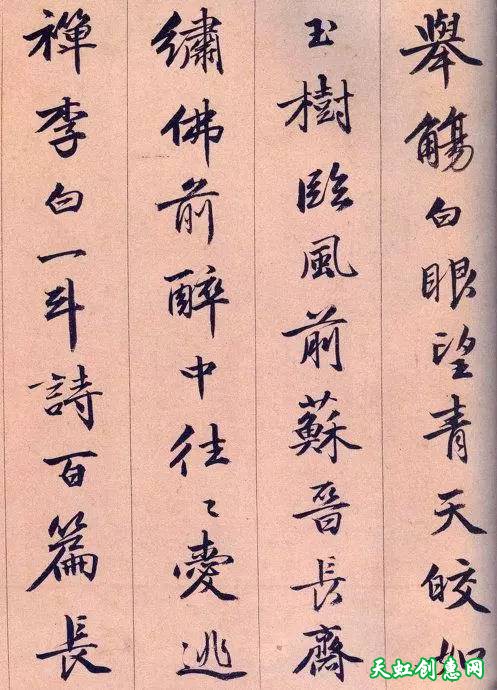 舉觴白眼望青天皎如
玉樹臨風前蘇晉長齋
繡佛前醉中往〻愛逃
禪李白一斗詩百篇長
天虹创惠网